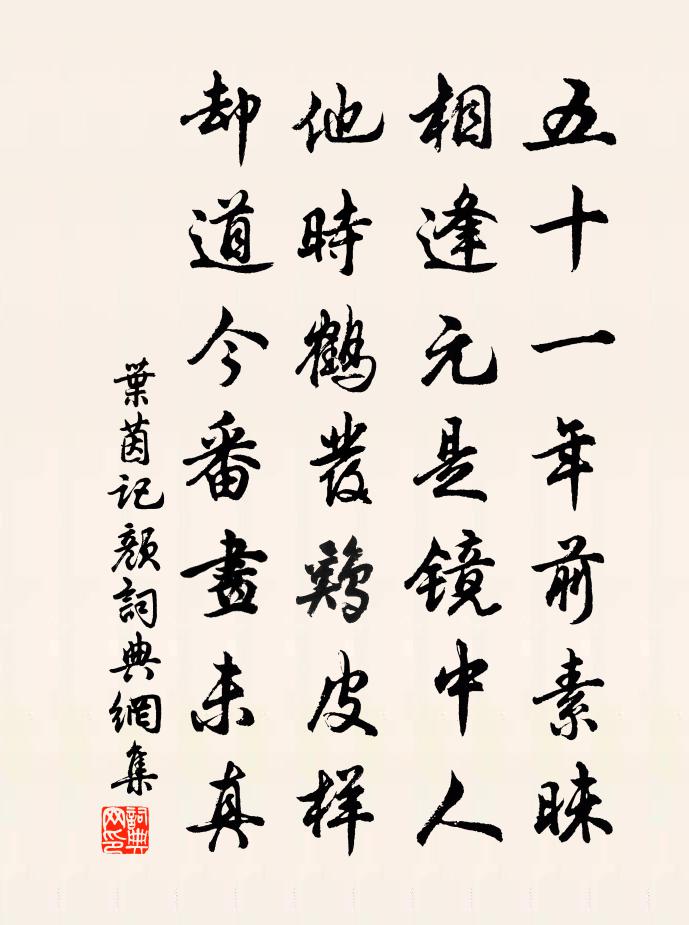 五十一年前素昧
相逢元是镜中人
他時鶴發鷄皮样
却道今番畫未真
葉茵記顏詞典網集
詞典网印